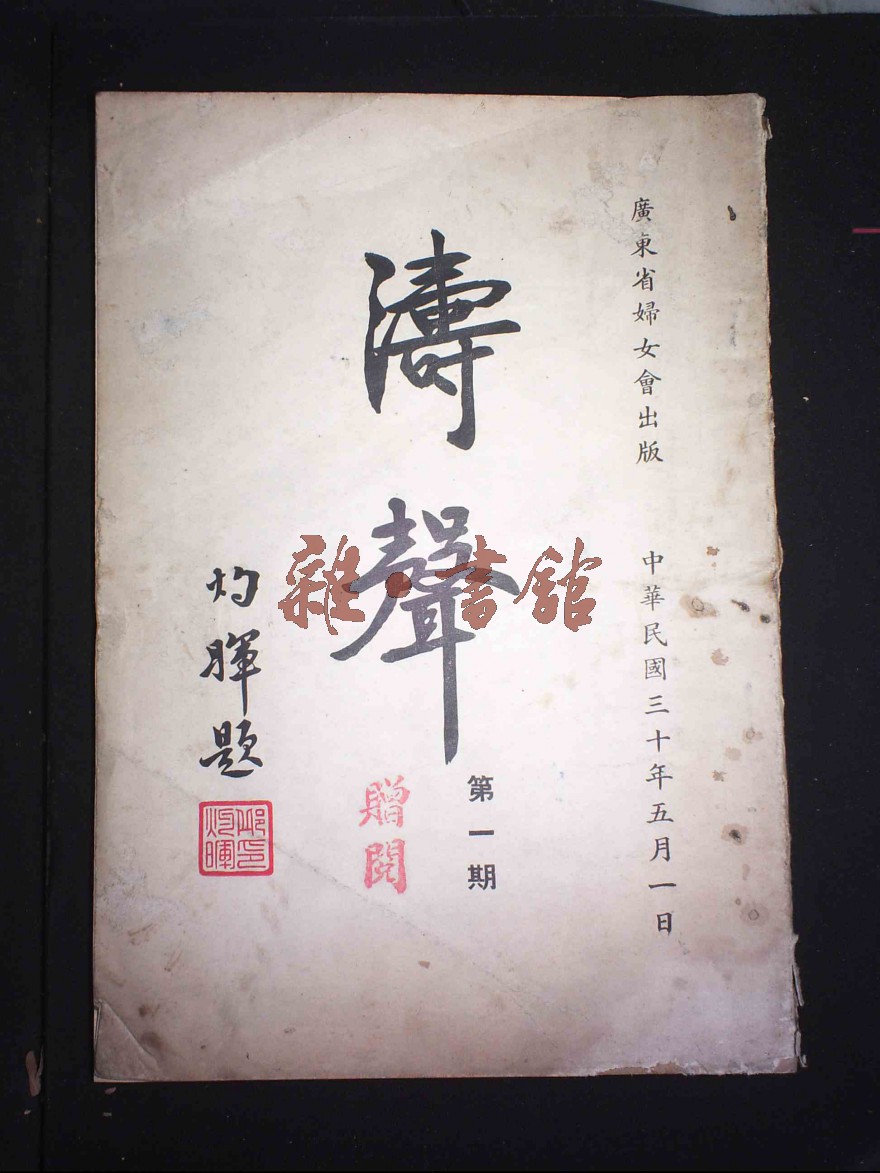 廣東省婦女會出版
中華民國三十年五月一日
濤聲
第一期
贈閱
灼暉題
雜·書館